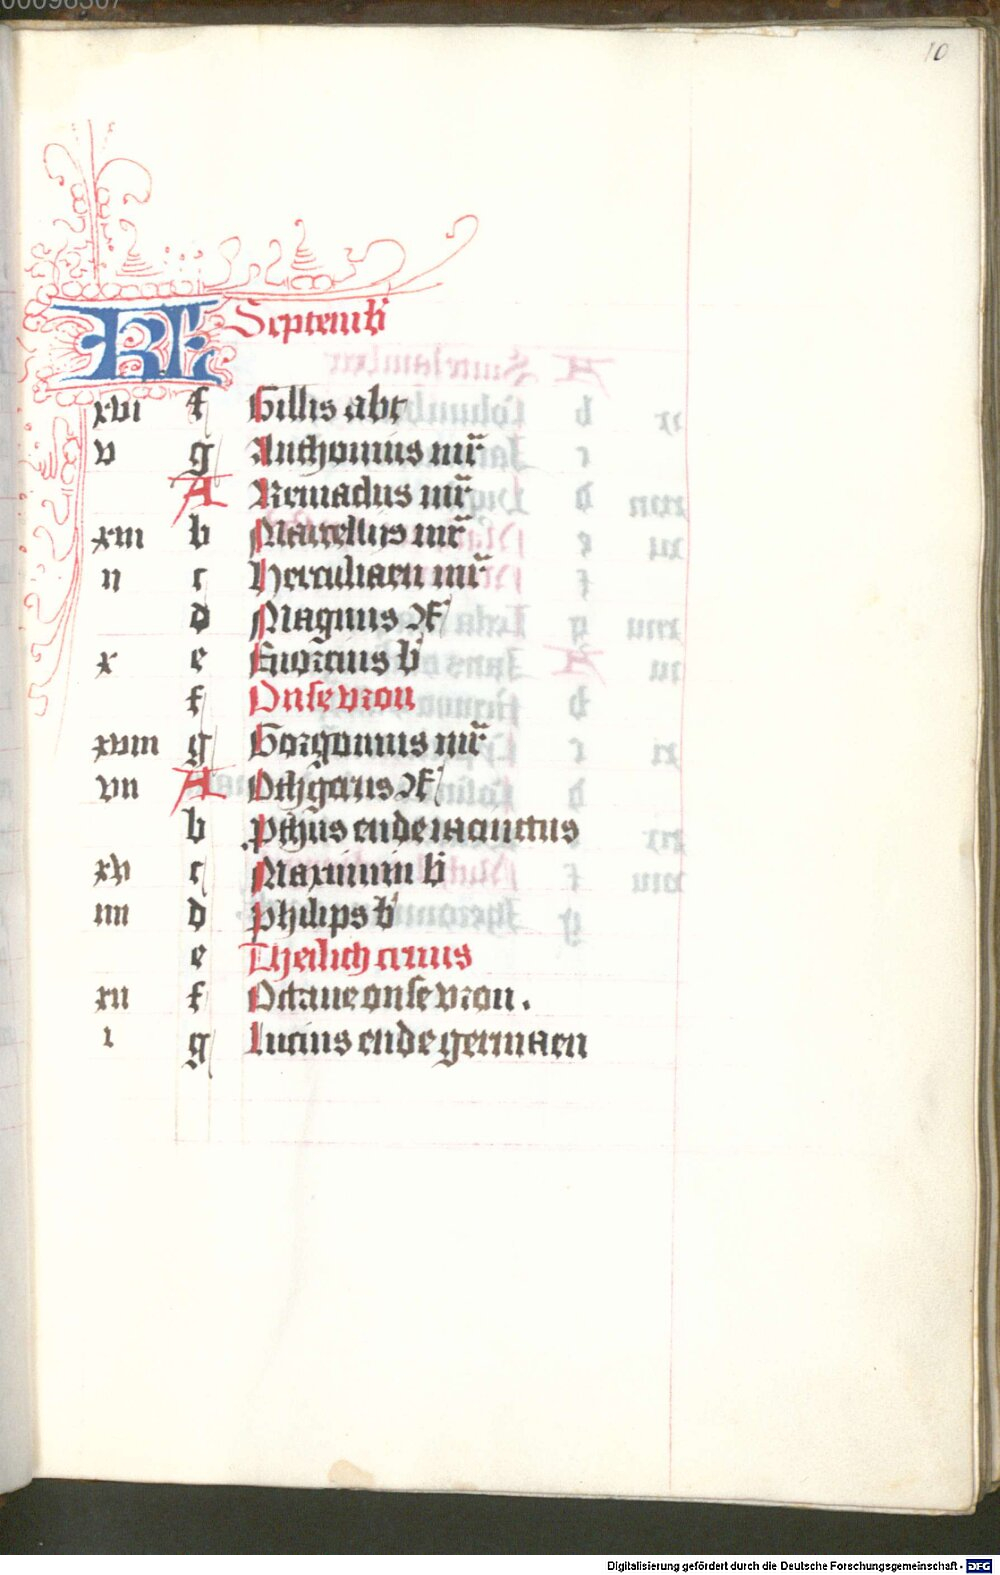 10
KL Septemb̄
xvi f Gillis abt
v g Anthonius mr̄
A Remaclus mr̄
xiii b Marcellus mr̄
ii c Herculiaen mr̄
d Magnus
x e Euorcius b̄
f Onse vrou
xviii g Gorgonius mr̄
vii A Othgerus
b Pthus ende iacinctus
xv c Maximiin b̄
iiii d Philips b̄
e Theilich cruus
xii f Octaue onse vrou.
i g Lucius ende germaen
Digitalisierung gefördert durch die Deutsche Forschungsgemeinschaft - DFG